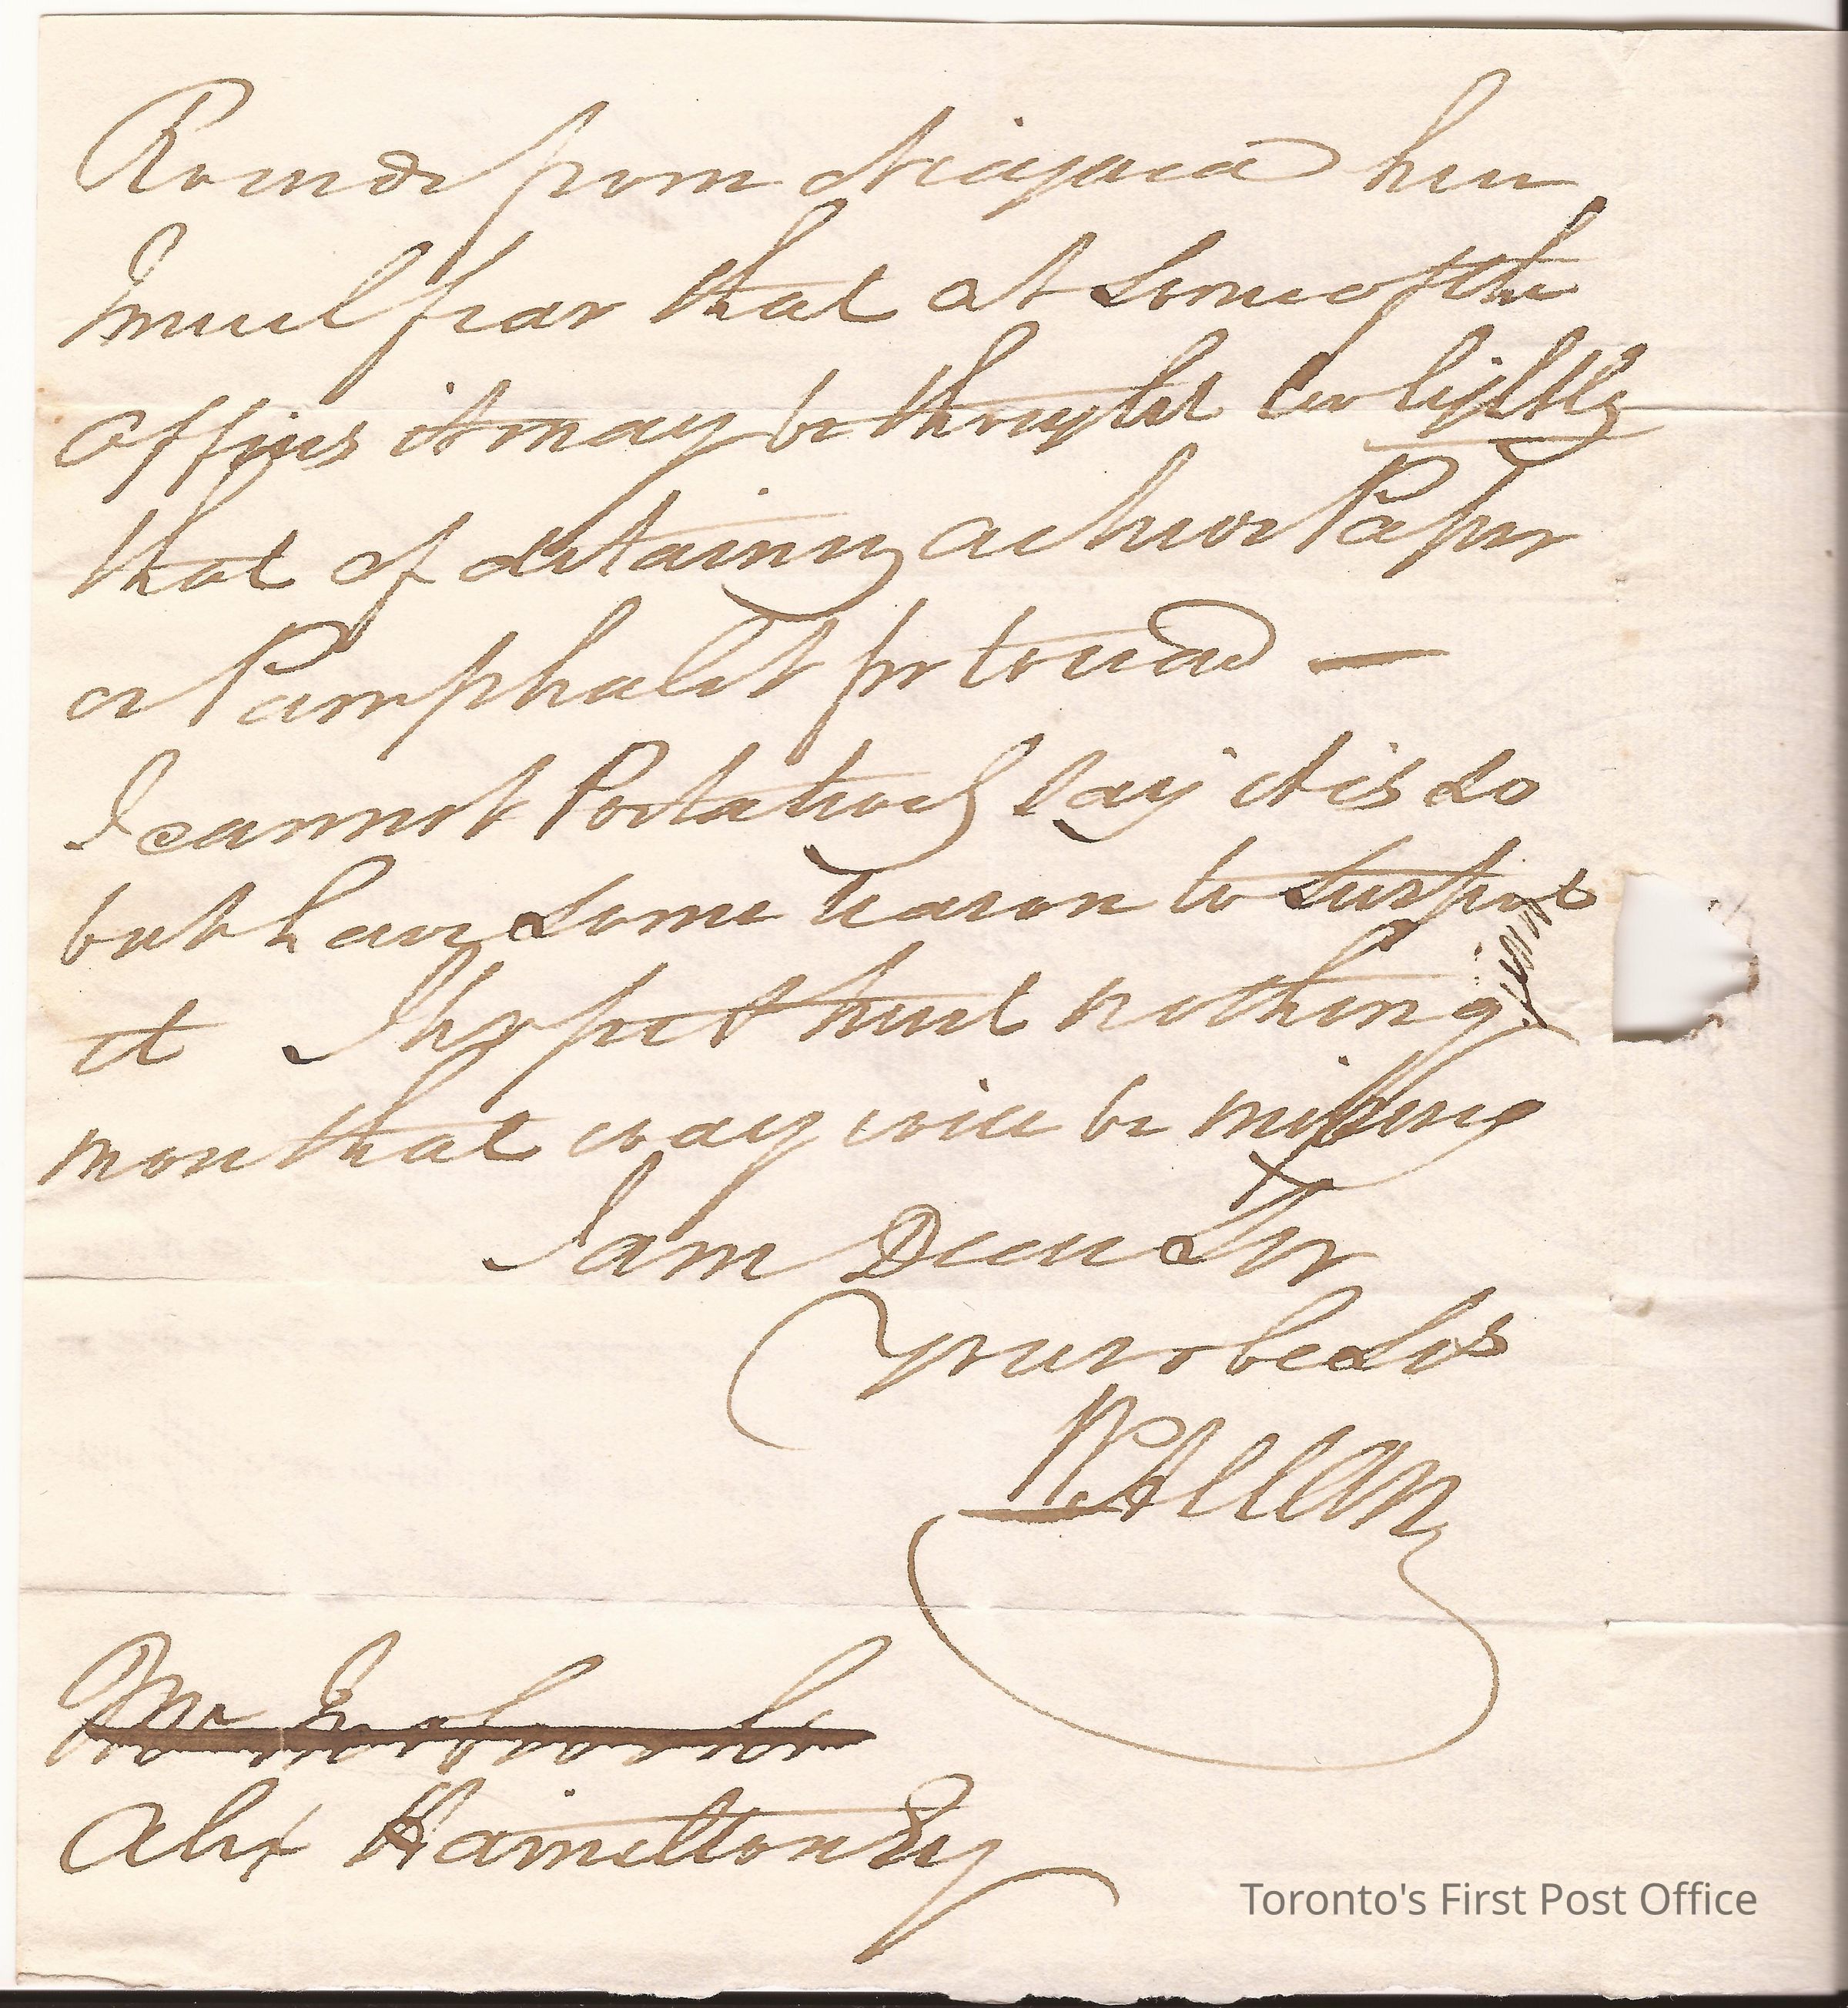 Rounds from Niagara here
I much fear that at Some of the
offices it may be thought too lightly
that of detaining a News Paper
or Pamphalet for to read —
I cannot say it is So
but have Some reason to Suspect
it I hope but trust nothing
more that way will be missing
I am Dear Sir
your obed Ser
W Allan
Alex Hamilton Esq
Toronto's First Post Office